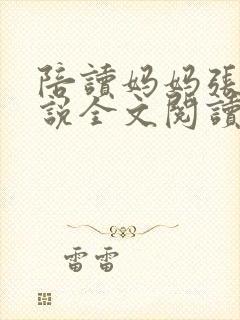 陪讀妈妈張
說全文閱讀
雷雷